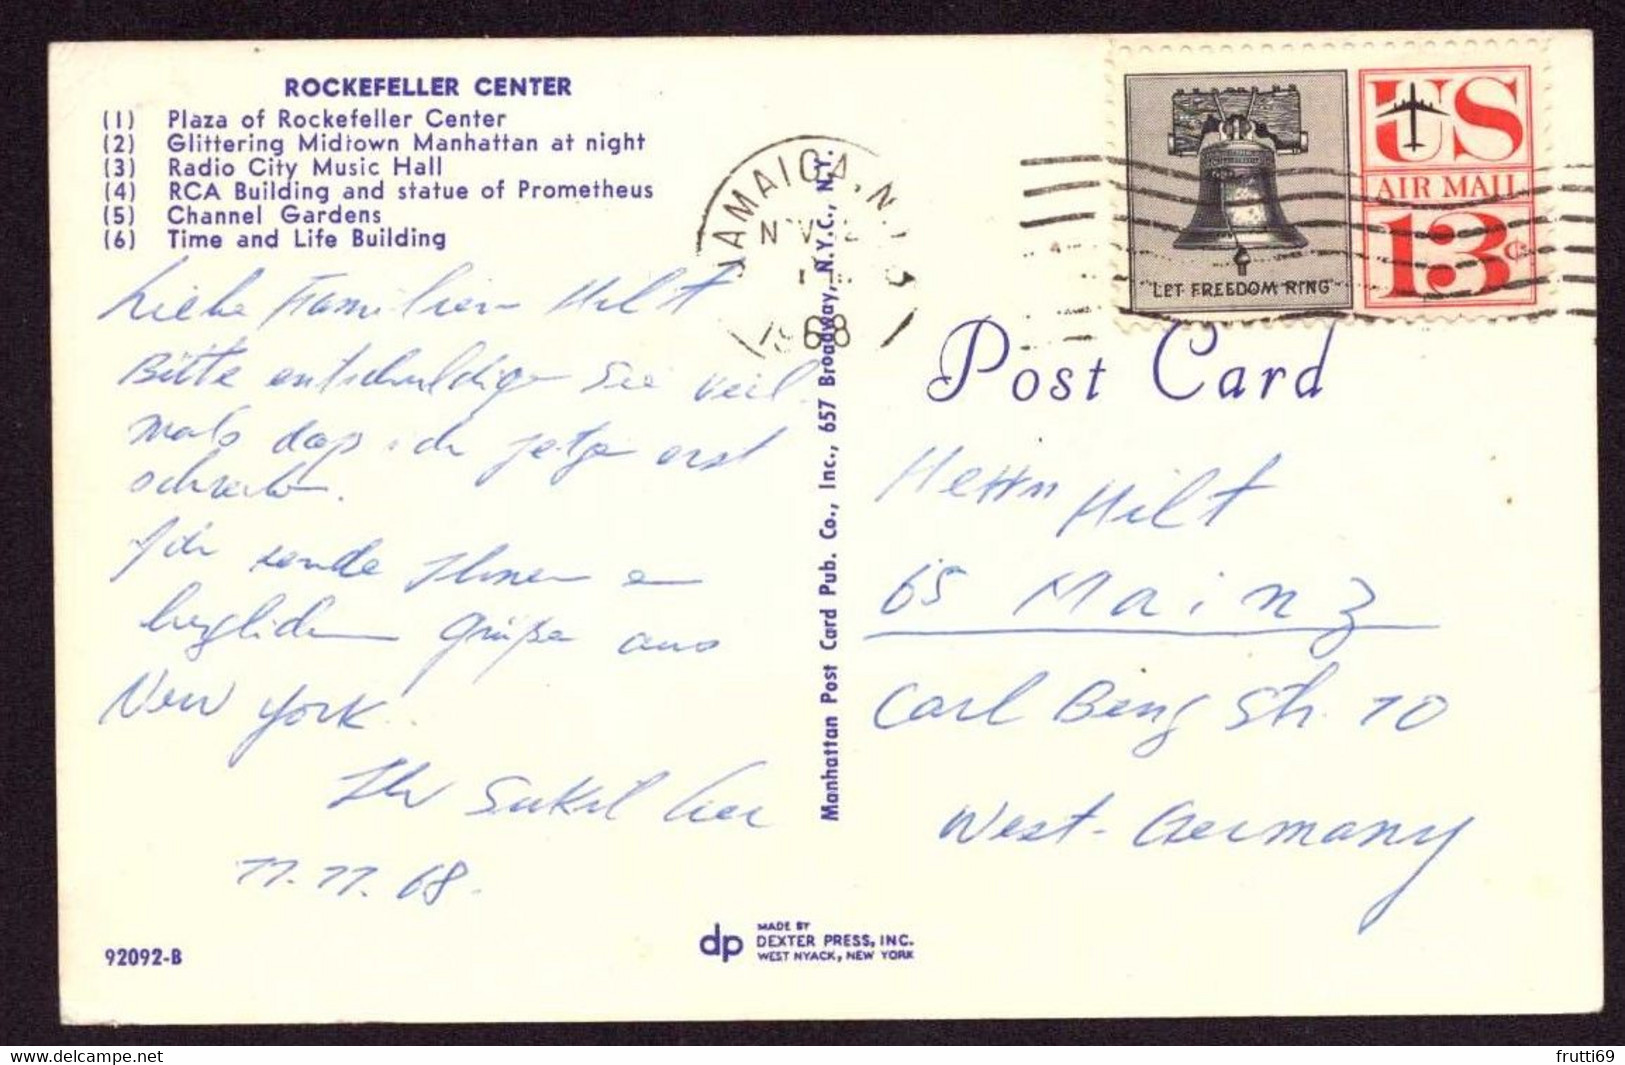 ROCKEFELLER CENTER
(1) Plaza of Rockefeller Center
(2) Glittering Midtown Manhattan at night
(3) Radio City Music Hall
(4) RCA Building and statue of Prometheus
(5) Channel Gardens
(6) Time and Life Building
Liebe Familien Hilt
Bitte entschuldigen Sie viel
mals daß ich jetzt erst
schreibe.
Ich sende Ihnen
herzlichen Grüße aus
New York.
Ihr
11.11.68.
92092-B
dp MADE BY
DEXTER PRESS, INC.
WEST NYACK, NEW YORK
Manhattan Post Card Pub. Co., Inc., 657 Broadway, N.Y.C., N.Y.
JAMAICA, N.Y.
NOV 12
1968
"LET FREEDOM RING"
US
AIR MAIL
13c
Post Card
Herrn Hilt
65 Mainz
Carl Benz Str. 10
West-Germany
frutti69
www.delcampe.net